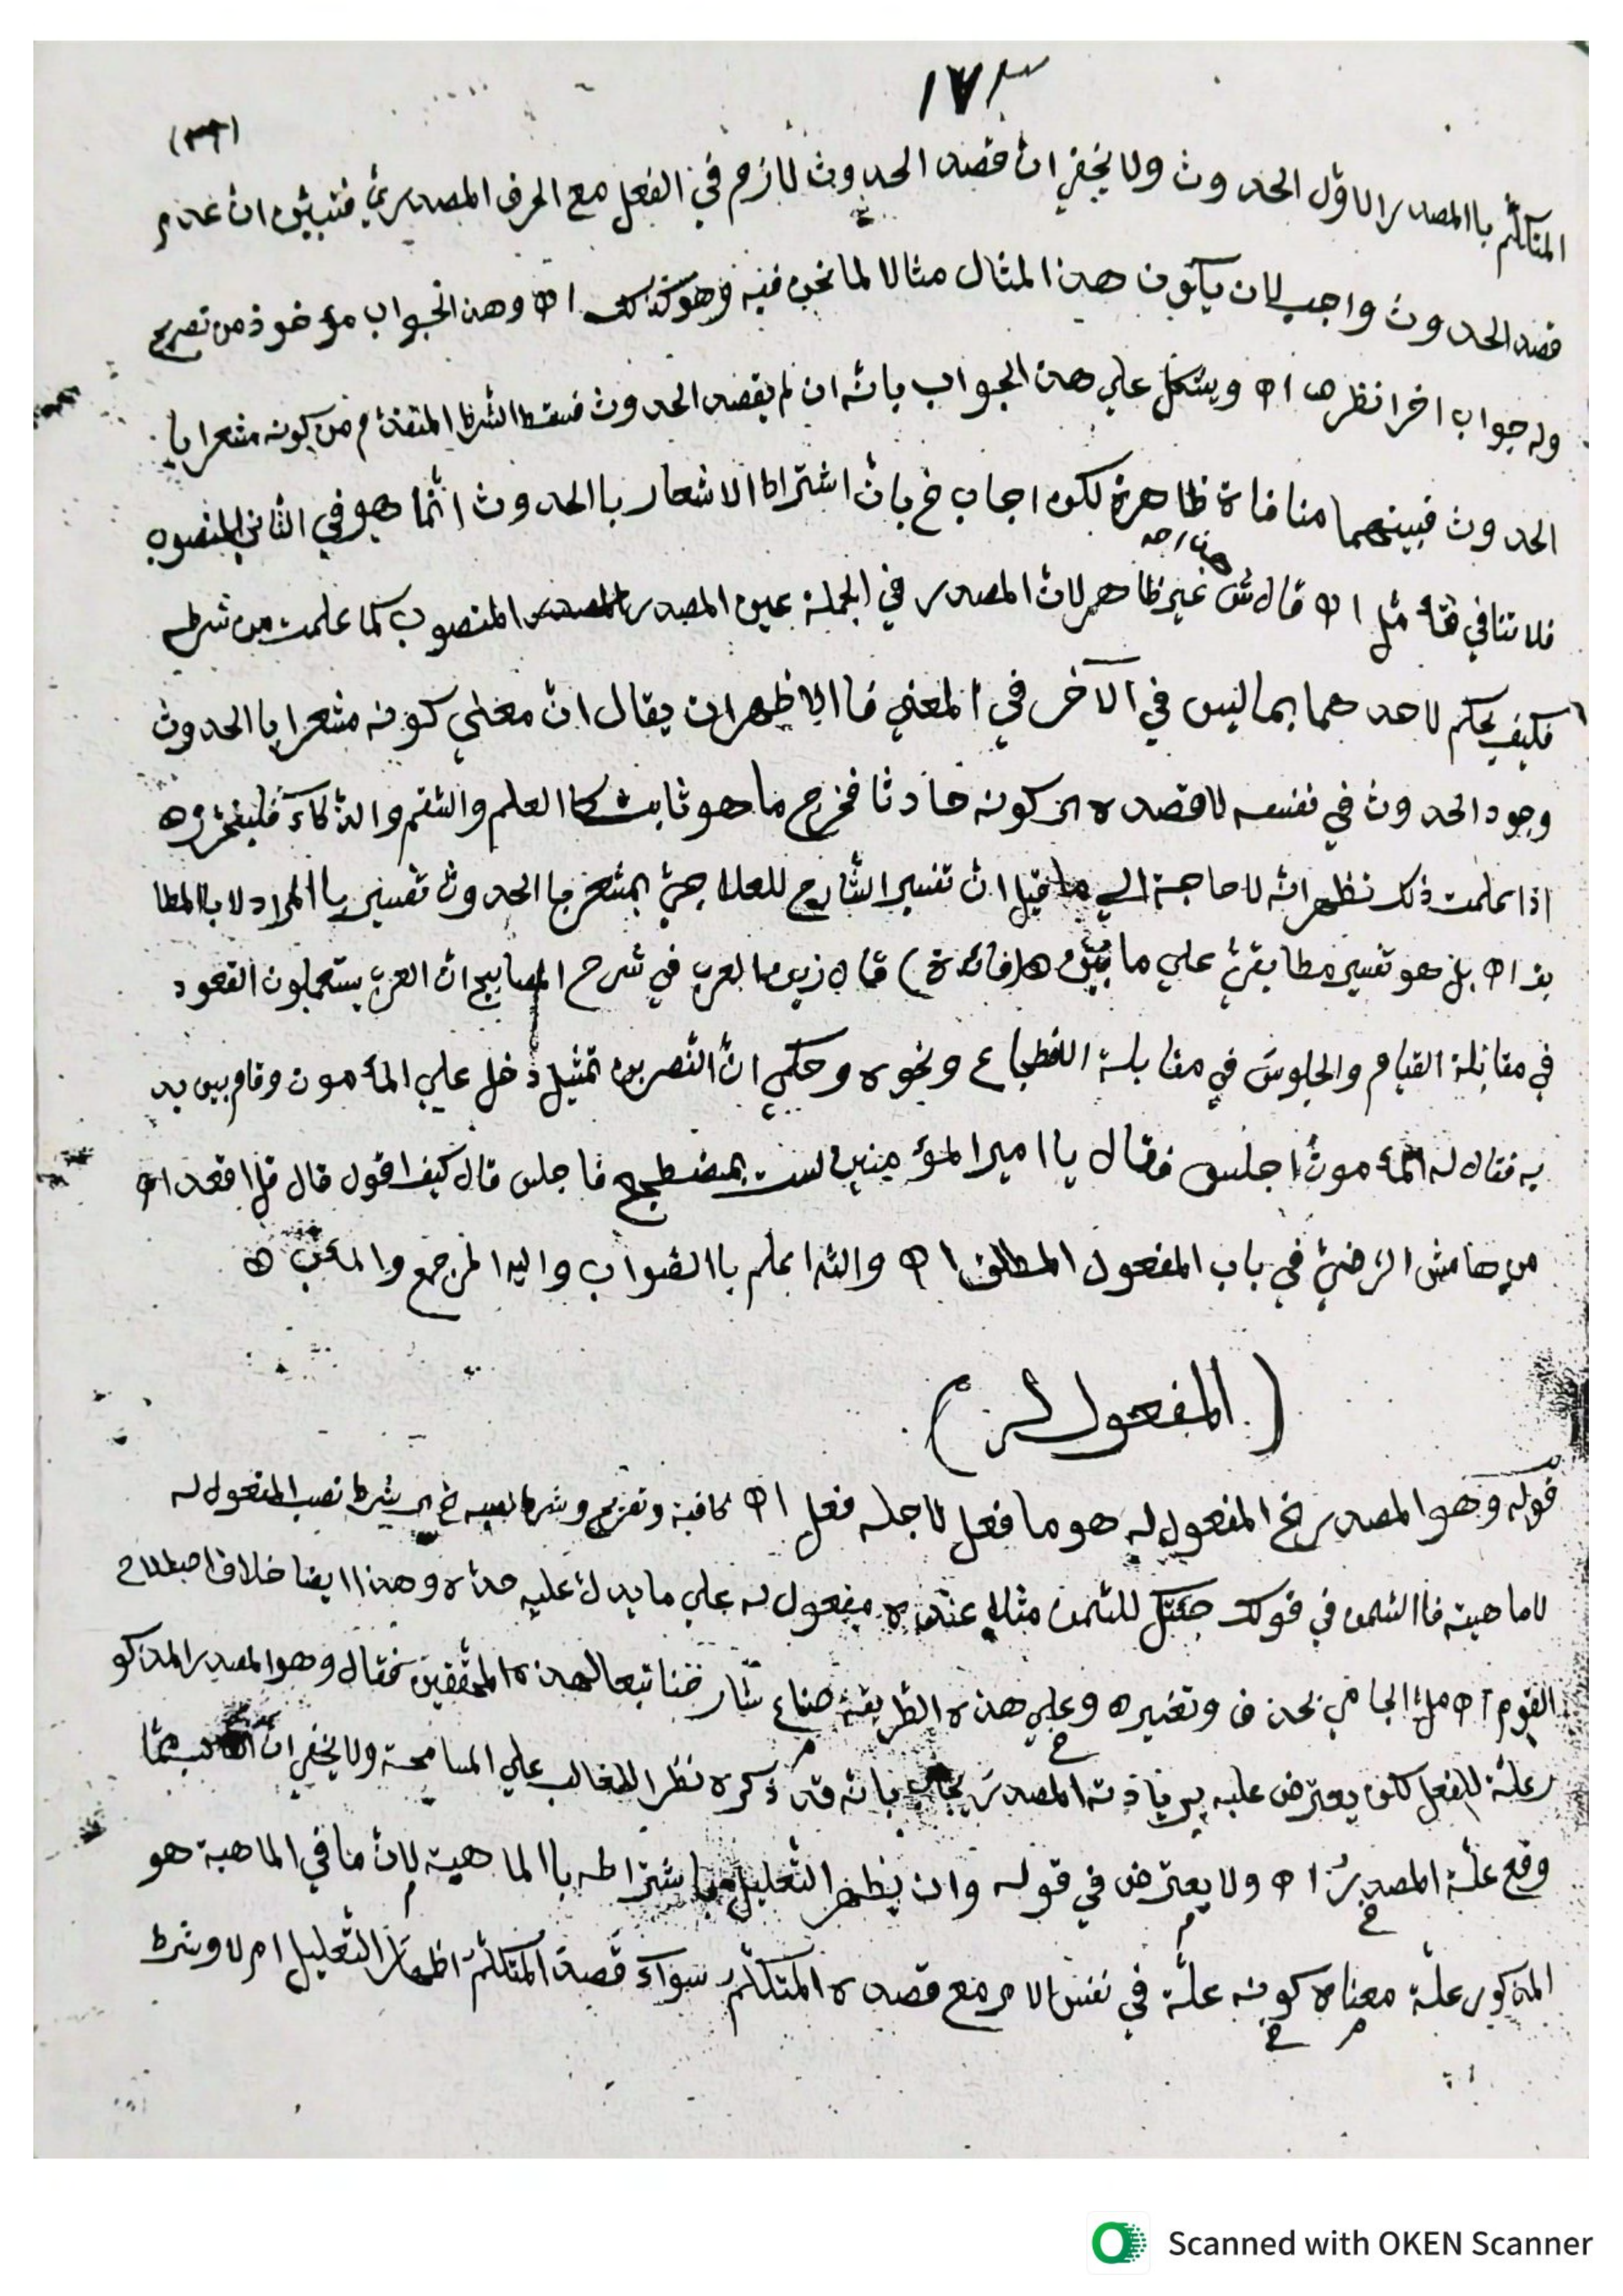 ١٧٣
(٣٦)
المتكلّم باالمصدر الاوّل الحدوث ولا يخفي انّ قصد الحدوث لازم في الفعل مع الحرف المصدريّ فتبيّن انّ عدم
قصد الحدوث واجب لان يكون هذا المثال مثالا لما نحن فيه وهو كذلك اﻫ وهذا الجواب مؤخوذ من تصريح
وله جواب اخر انظرها اﻫ ويشكل علي هذا الجواب بانّه ان لم يقصد الحدوث فسقط الشرط المتقدّم من كونه مشعرا با
الحدوث فبينهما منافاة ظاهرة لكن اجاب خ بانّ اشتراط الاشعار باالحدوث انّما هو في الثاني المنصوب
فلا تنافي فتأمّل اﻫ قال ش غير ظاهر لانّ المصدر في الجملة عين المصدر المنصوب كما علمت من شرطه
فكيف يحكم لاحدهما بما ليس في الآخر في المعني فاالاظهر ان يقال انّ معني كونه مشعرا باالحدوث
وجود الحدوث في نفسه لا قصده اي كونه حادثا فخرج ما هو ثابت كاالعلم والسّقم والذّكاء فليحرّر اﻫ
اذا علمت ذلك تظهر انّه لا حاجة الي ما قيل انّ تفسير الشّارح للعلاجيّ بمشعر باالحدوث تفسير باالمراد لا باالمطا
بق اﻫ بل هو تفسير مطابقيّ علي ما بيّن اﻫ (فائدة) قال زين العرب في شرح المصابيح انّ العرب يستعملون القعود
في مقابلة القيام والجلوس في مقابلة الاضطجاع ونحوه وحكي انّ النّصر بن تمثيل دخل علي المأمون وقام بين يد
يه فقال له المأمون اجلس فقال يا امير المؤمنين لست بمضطجع فاجلس قال كيف اقول قال قل اقعد اﻫ
من هامش الرّضيّ في باب المفعول المطلق اﻫ واللّه اعلم باالصّواب واليه المرجع والمآب اﻫ
(المفعول له)
قوله وهو المصدر الخ المفعول له هو ما فعل لاجله فعل اﻫ كافية وتفريع وشرط نصبه خ اي شرط نصب المفعول له
لا ماهيته فاالسّمن في قولك جئتك للسّمن مثلا عنده مفعول له علي ما يدلّ عليه حدّه وهذا ايضا خلاف اصطلاح
القوم اﻫ ملّا الجامي بحذف وتغيير اﻫ وعلي هذه الطّريقة صناع شارحنا تبعا لهذه المحقّقين فقال وهو المصدر المذكو
ر علّة للفعل لكن يعترض عليه بزيادته المصدر يجاب بانّه قد ذكره نظرا للغالب علي المسامحة ولا يخفي انّ الغالب ممّا
وقع علّة المصدر اﻫ ولا يعترض في قوله وان يظهر التّعليل باشتراطه باالماهية لانّ ما في الماهية هو
المذكور علّة معناه كونه علّة في نفس الامر مع قصده المتكلّم سوآء قصد المتكلّم اظهار التّعليل ام لا وشرط
Scanned with OKEN Scanner